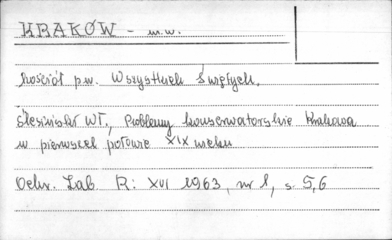 KRAKÓW - m.w.
Kościół p.w. Wszystkich Świętych.
Ślesiński Wł., Problemy konserwatorskie Krakowa
w pierwszej połowie XIX wieku
Ochr. Zab. R: XVI 1963, nr 1, s. 5,6